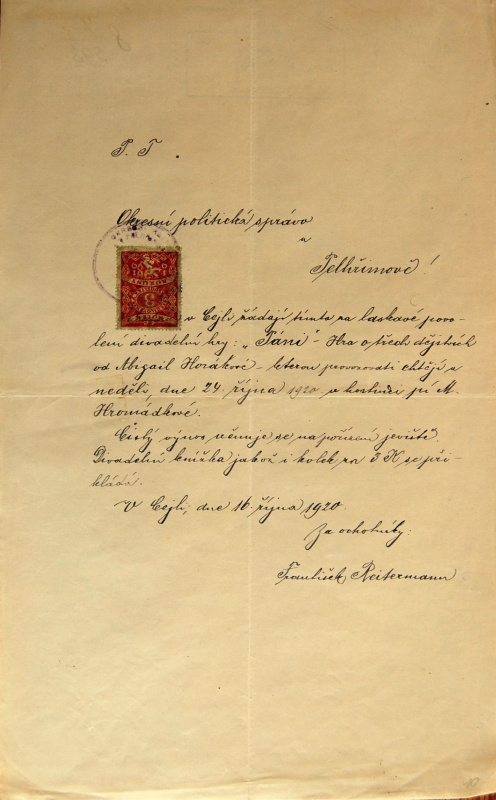 P. T.
Okresní politická správo
v
Pelhřimově!
v Cejli žádají tímto za laskavé povo-
lení divadelní hry: „Páni" - Hra o třech dějstvích
od Abigail Horákové - kterou provozovati chtějí v
neděli, dne 24. října 1920 v hostinci pí M.
Hromádkové.
Čistý výnos věnuje se na pořízení jeviště.
Divadelní knížka jakož i kolek za 3 K se při-
kládá.
V Cejli, dne 16. října 1920.
Za ochotníky:
František Reitermann
10